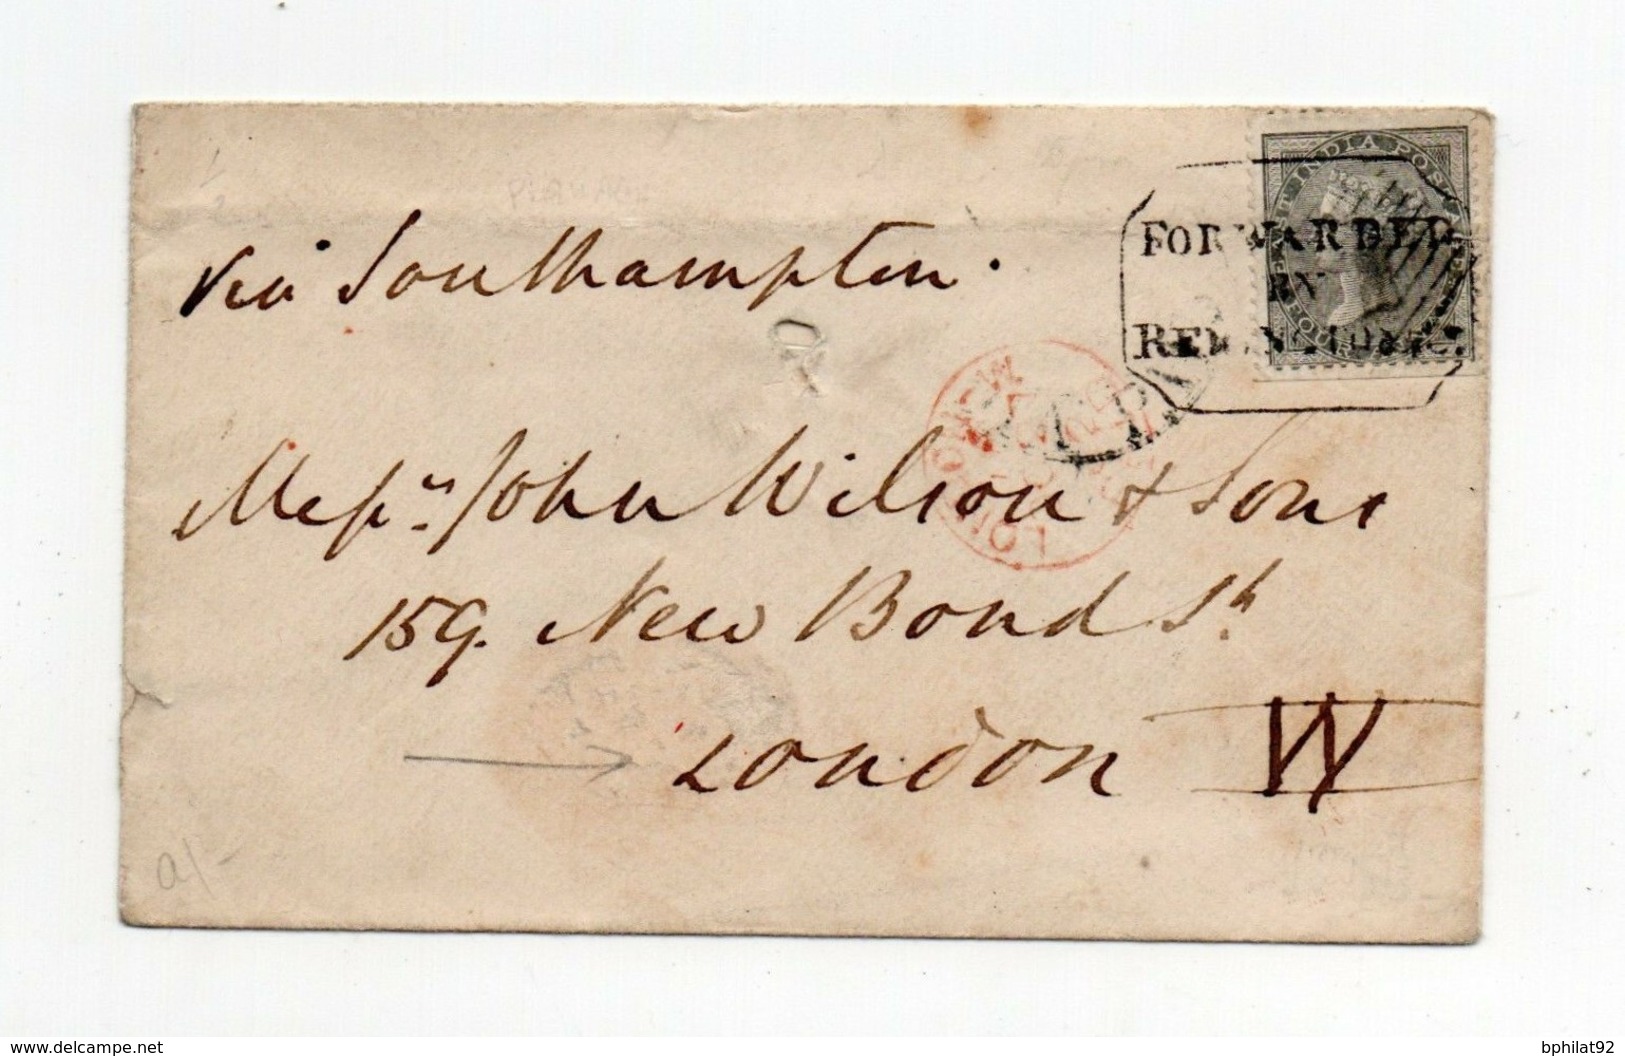 Via Southampton.
FORWARDED
BY
INDIA POSTAGE
FOUR
Messrs John Wilson & Sons
159. New Bond St.
London W
LONDON
PAID
a/-
www.delcampe.net
bphilat92